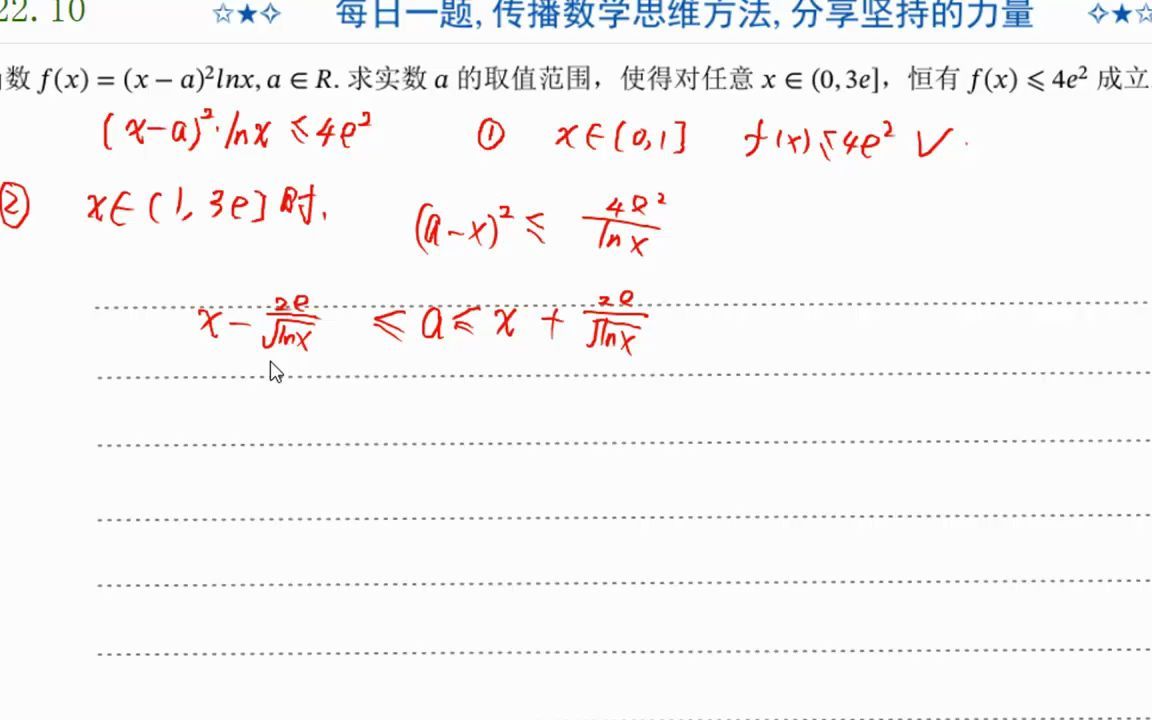 22.10 ☆★✧ 每日一题,传播数学思维方法,分享坚持的力量 ✧★☆
数 f(x) = (x − a)²lnx, a ∈ R. 求实数 a 的取值范围，使得对任意 x ∈ (0, 3e]，恒有 f(x) ⩽ 4e² 成立
(x−a)²·lnx ≤ 4e² ① x∈(0,1] f(x)≤4e² ✓.
② x∈(1,3e]时, (a−x)² ≤ 4e²/lnx
x − 2e/√lnx ≤ a ≤ x + 2e/√lnx